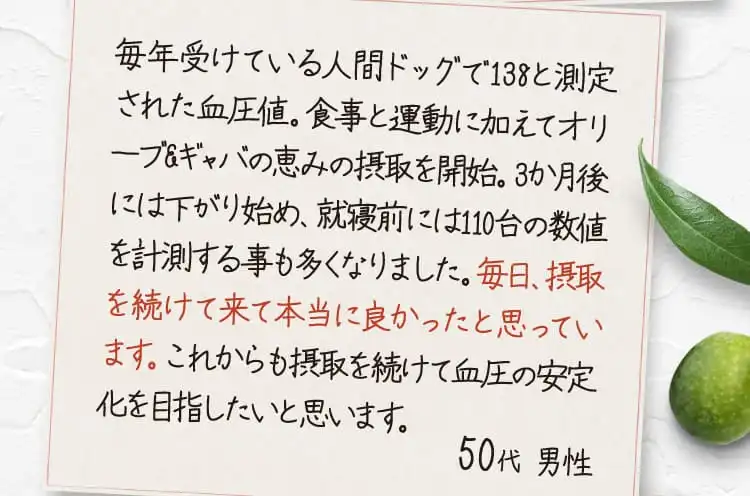 毎年受けている人間ドッグで138と測定
された血圧値。食事と運動に加えてオリ
ーブ&ギャバの恵みの摂取を開始。3か月後
には下がり始め、就寝前には110台の数値
を計測する事も多くなりました。毎日、摂取
を続けて来て本当に良かったと思ってい
ます。これからも摂取を続けて血圧の安定
化を目指したいと思います。
50代 男性